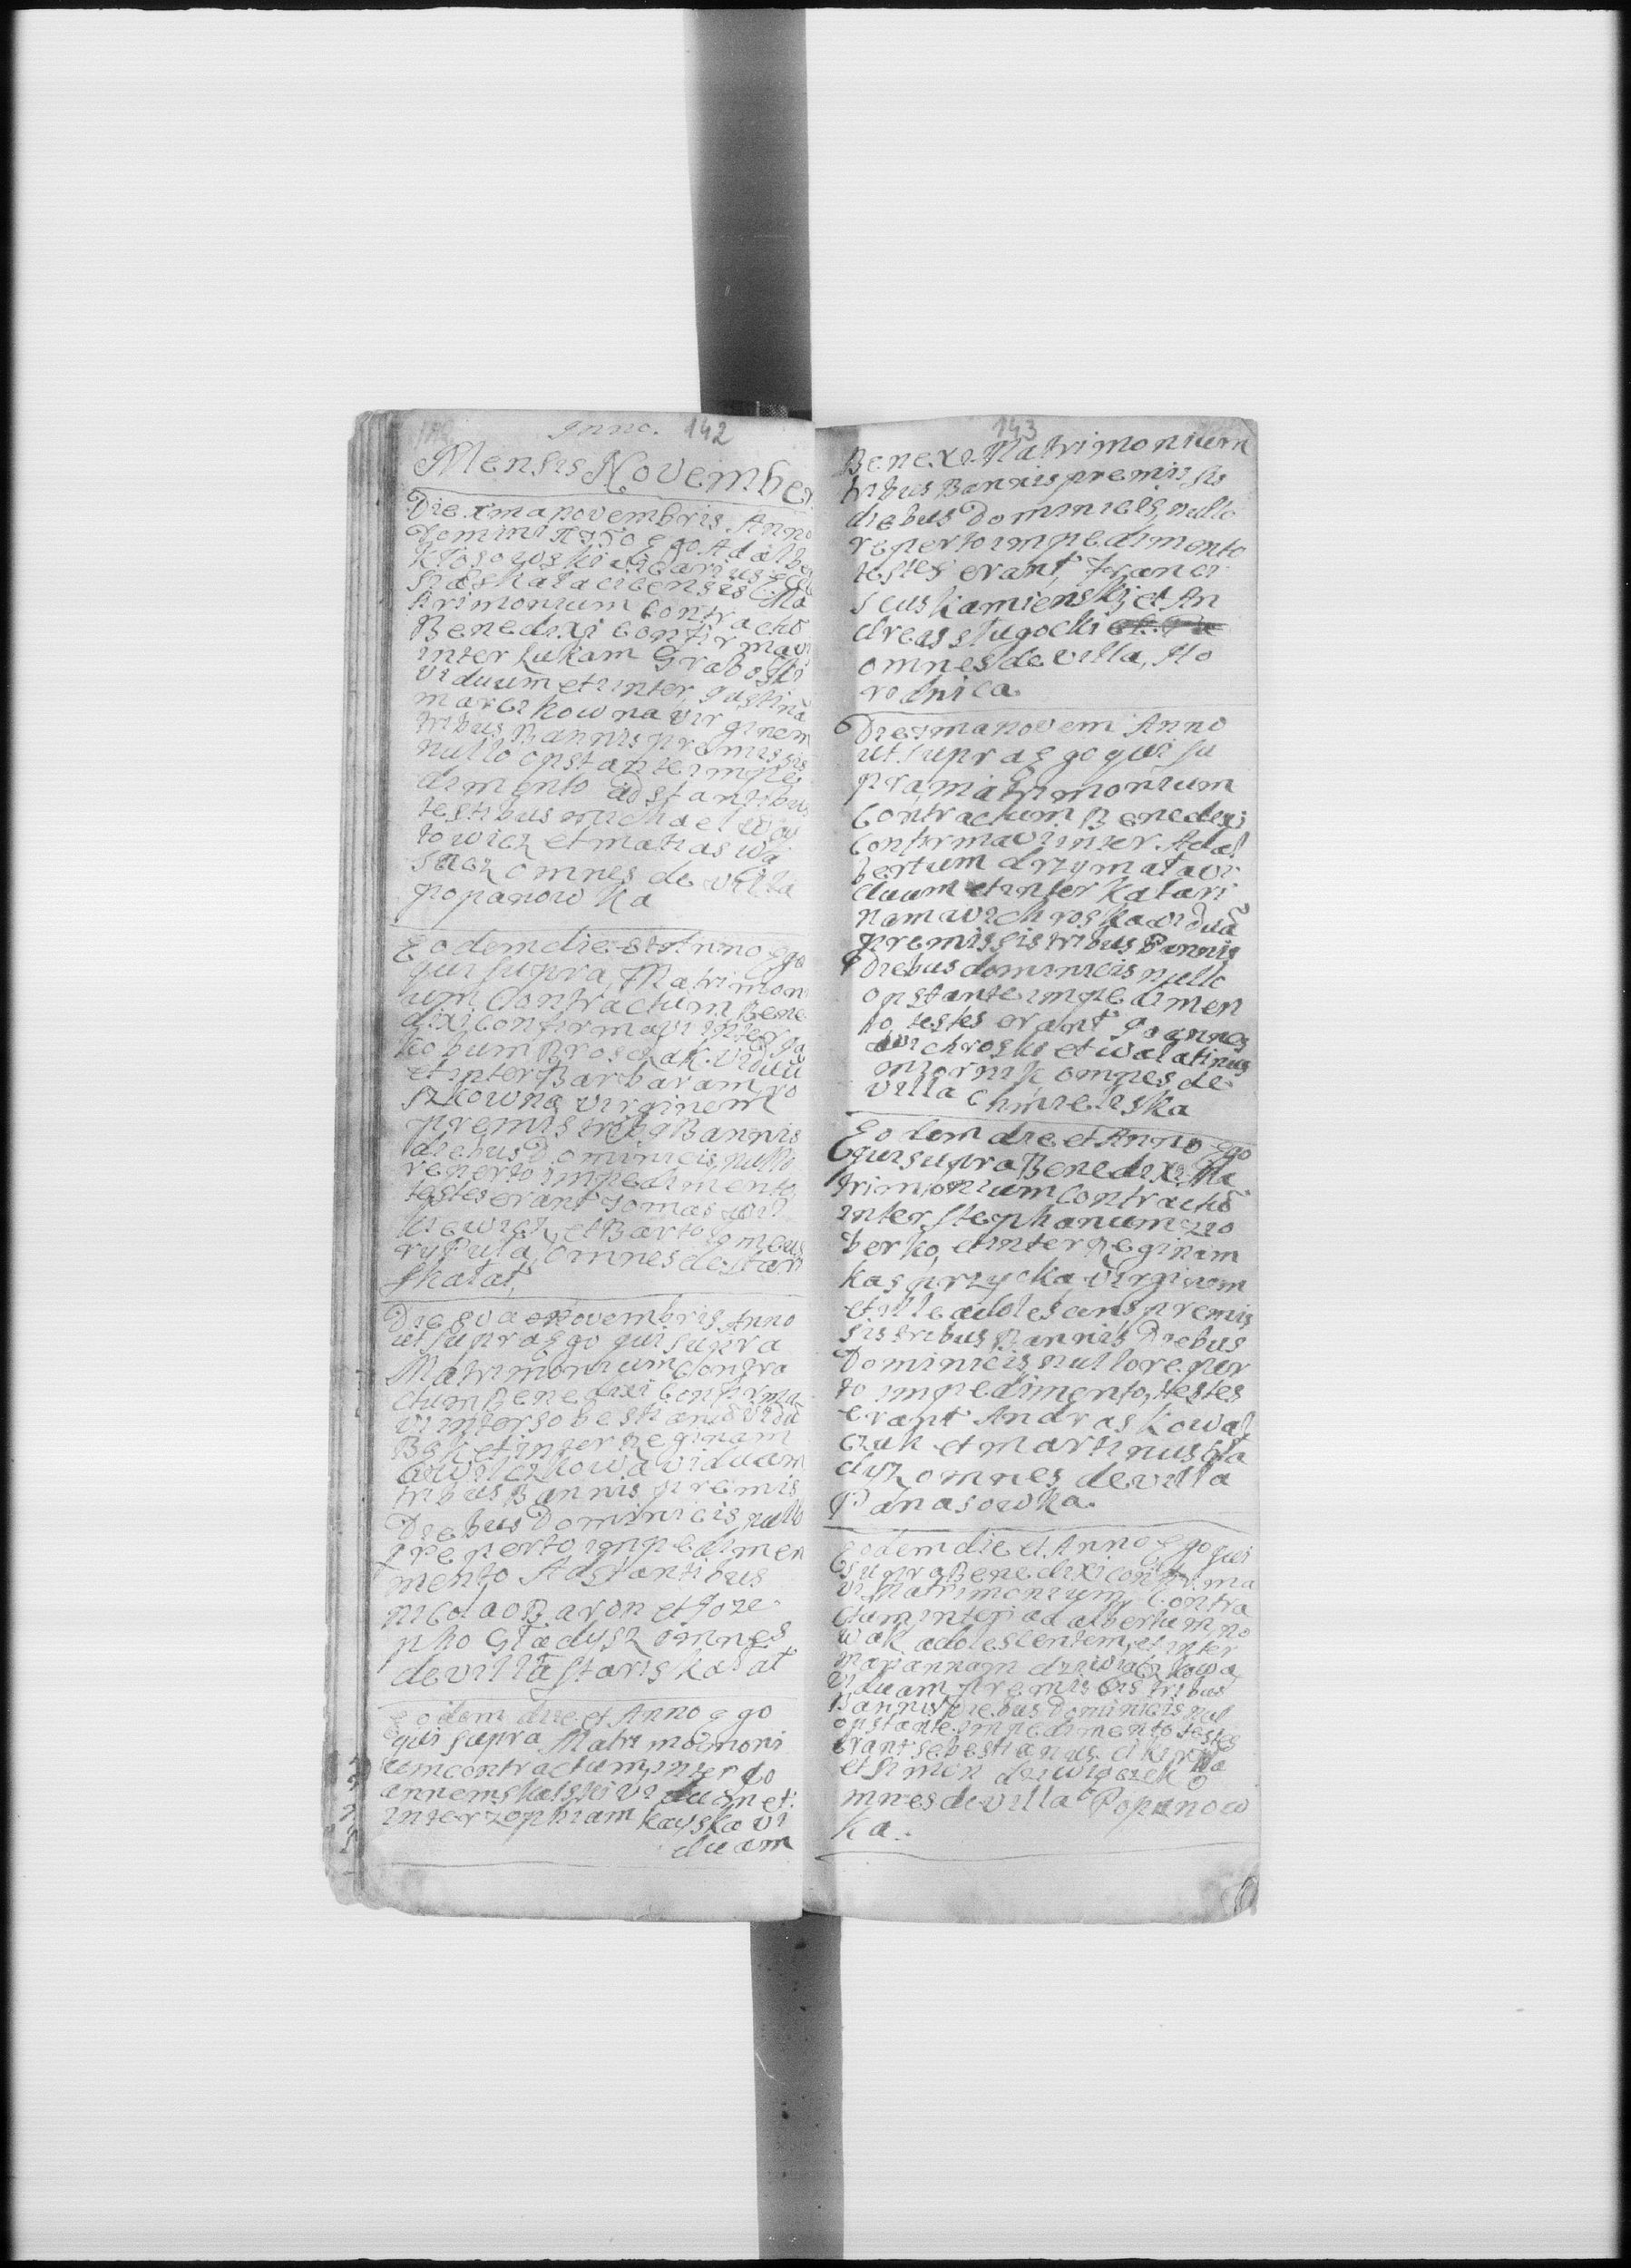 Anno. 142
Mensis November
Die xma novembris Anno
Domini 1750 Ego Adalber
Kłosowski vicarius Eccl
siae skalacicensis Ma
trimonium Contractū
Benedixi Confirmavi
inter Lukam Graboski
viduum et inter Justinā
marcikowna virginem
tribus Bannis premissis
nullo opstante impe
dimento adstantibus
testibus michael woy
towicz et matias wa
omnes de villa
popanowka
Eodem die et Anno Ego
qui supra, Matrimon
ium Contractum Bene
dixi Confirmavi inter Ja
kobum viduū
et inter Barbaram ro
szkowna virginem
premis Bannis
diebus Dominicis, nullo
reperto impedimento
testes erant Tomas
et Bartolomeus
omnes de stari
skałat
Die Novembris Anno
ut supra Ego qui supra
Matrimonium Contra
ctum Benedixi Confirma
vi inter sobestianū vidū
Bąk et inter Reginam
viduam
tribus Bannis premis
Diebus Dominicis nullo
reperto impedimen
mento Adstantibus
nicolao Baron et Joze
pho Gładysz omnes
de villa stariskałat
Eodem die et Anno Ego
qui supra Matrimoimoni
um contractum, inter Jo
annem skalski viduom et
inter zophiam kayska vi
duam
143
Benexi Matrimonium
tribus Bannis premissis
diebus Dominicis, nullo
reperto impedimento
testes erant, Franci
scus kamienski, et An
dreas sługocki
omnes de villa, Ho
rodnica
Die ima novem Anno
ut supra Ego qui su
pra, matrimonium
Contractum Benedixi
Confirmavi inter Adal
bertum drzymała vi
duum et inter Katari
nam wichroska viduā
premissis tribus Bannis
Diebus dominicis nullo
opstante impedimen
to testes erant Joannes
wichroski et walatinus
miornik omnes de
villa Chmieliska
Eodem die et Anno Ego
qui supra Benedixi Ma
trimonium Contractū
inter Stephanum zio
berko, et inter Reginam
kasprzycka, virginem
et ille adolescens premis
sis tribus Bannis Diebus
Dominicis, nullo reper
to impedimento, testes
erant Andras kowal
czuk et martinus gła
dysz omnes de villa
Panasowka.
Eodem die et Anno Ego qui
supra Benedixi confirma
vi Matrimonium Contra
ctum, inter adalbertum, no
wak adolescentem, et inter
mariannam
viduam premissis tribus
Bannis Diebus Dominicis nul
opstante impedimento testes
erant sebestianus
et simon o
mnes de villa Popanow
ka.